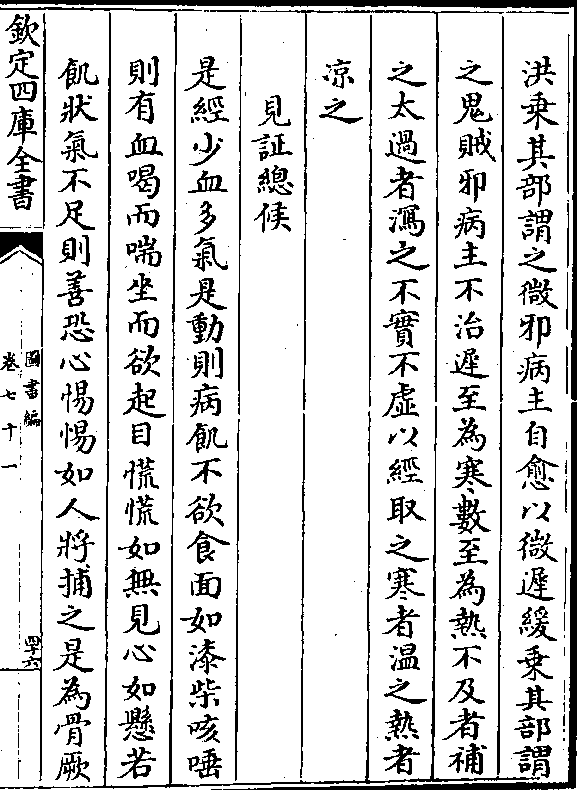 洪乘其部謂之微邪病主自愈以微遲緩乘其部謂
之鬼賊邪病主不治遲至為寒數至為熱不及者補
之太過者瀉之不實不虛以經取之寒者温之熱者
凉之
見証總候
是經少血多氣是動則病飢不欲食面如漆柴咳唾
則有血喝而喘坐而欲起目慌慌如無見心如懸若
飢狀氣不足則善恐心惕惕如人將捕之是為骨厥
欽定四庫全書
圖書編
卷七十一
四十六